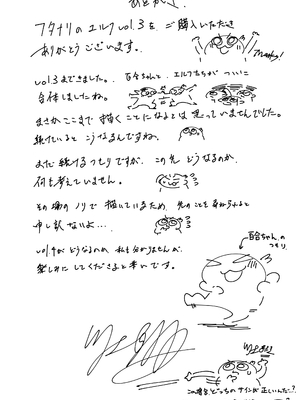 あとがき。
フタナリのエルフvol.3をご購入いただき
ありがとうございます。
Thanks!
vol.3まできました。百合ちゃんと、エルフたちがついに
合体しましたね。
まさかここまで描くことになるとは思っていませんでした。
続けていると こうなるんですね。
まだ続けるつもりですが、この先どうなるのか、
何も考えていません。
その場のノリで描いているため、先のことを
申し訳ないよ…
vol.4がどうなるのか、私も分かりませんが、
楽しみにしてくださると幸いです。
百合ちゃんの
つもり
この場合どっちのサインが正しいんだ…?